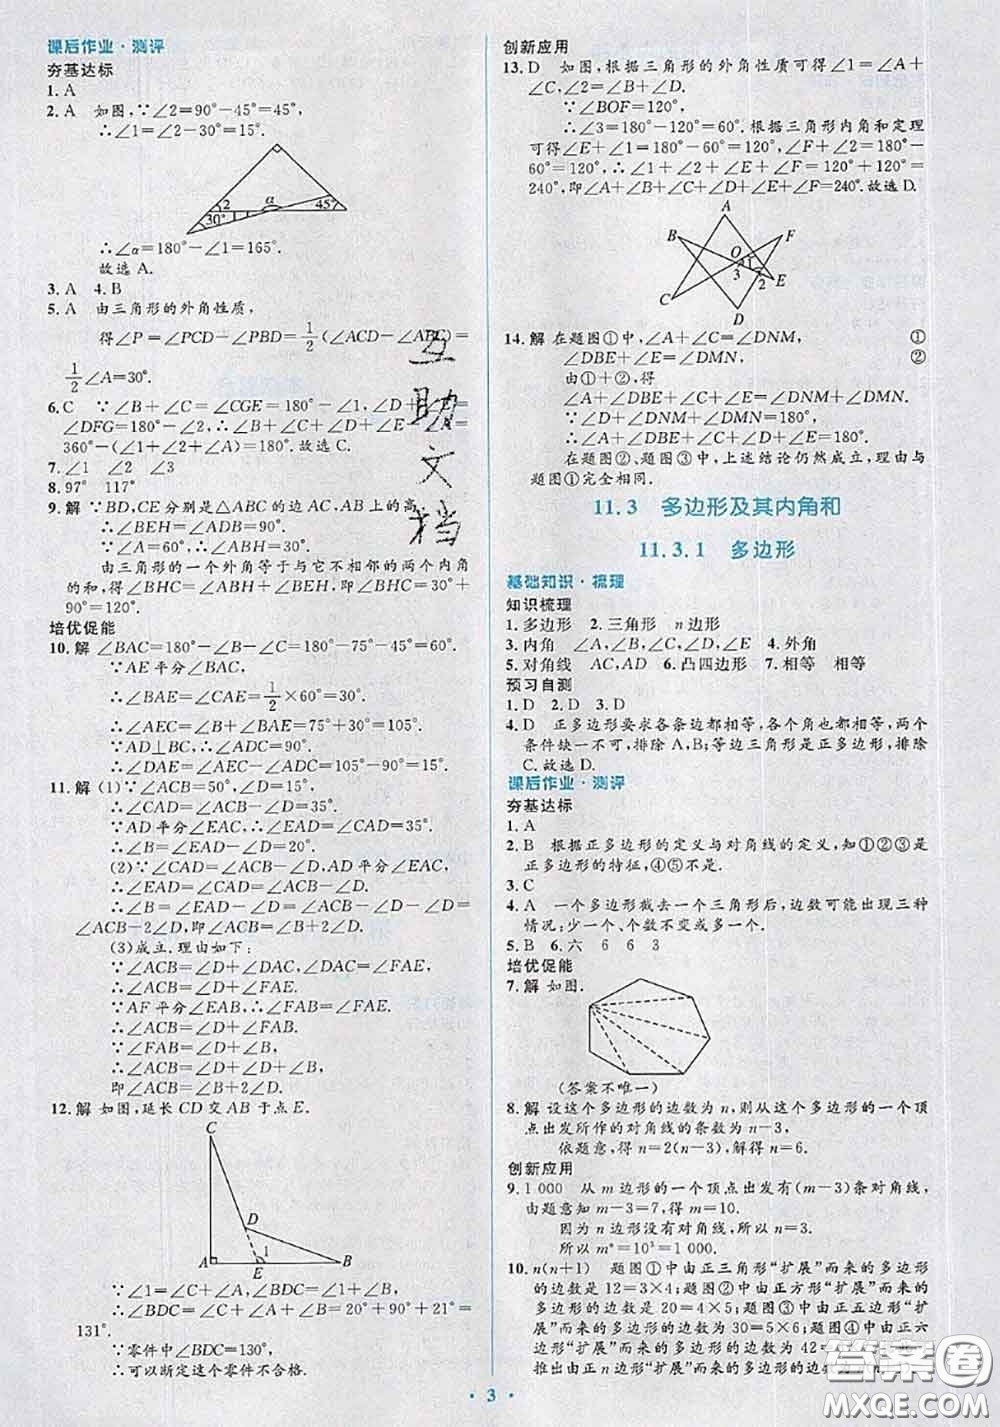 课后作业·测评
夯基达标
1. A
2. A 如图,∵∠2=90°-45°=45°,
∴∠1=∠2-30°=15°.
2
α
45°
30°
1
∴∠α=180°-∠1=165°.
故选 A.
3. A 4. B
5. A 由三角形的外角性质,
得∠P=∠PCD-∠PBD=1/2(∠ACD-∠ABC)=
1/2∠A=30°.
6. C ∵∠B+∠C=∠CGE=180°-∠1,∠D+∠E=
∠DFG=180°-∠2,∴∠B+∠C+∠D+∠E+∠A=
360°-(∠1+∠2+∠A)=180°.故选 C.
7. ∠1 ∠2 ∠3
8. 97° 117°
9. 解 ∵BD,CE分别是△ABC的边AC,AB上的高,
∴∠BEH=∠ADB=90°.
∵∠A=60°,∴∠ABH=30°.
由三角形的一个外角等于与它不相邻的两个内角
的和,得∠BHC=∠ABH+∠BEH=30°+
90°=120°.
培优促能
10. 解 ∠BAC=180°-∠B-∠C=180°-75°-45°=60°.
∵AE平分∠BAC,
∴∠BAE=∠CAE=1/2×60°=30°.
∴∠AEC=∠B+∠BAE=75°+30°=105°.
∵AD⊥BC,∴∠ADE=90°.
∴∠DAE=∠AEC-∠ADE=105°-90°=15°.
11. 解 (1)∵∠ACB=50°,∠D=15°,
∴∠CAD=∠ACB-∠D=35°.
∵AD平分∠EAC,∴∠EAD=∠CAD=35°.
∴∠B=∠EAD-∠D=20°.
(2)∵∠CAD=∠ACB-∠D,AD平分∠EAC,
∴∠EAD=∠CAD=∠ACB-∠D.
∴∠B=∠EAD-∠D=∠ACB-∠D-∠D=
∠ACB-2∠D,即∠ACB=∠B+2∠D.
(3)成立.理由如下:
∵∠ACB=∠D+∠DAC,∠DAC=∠FAE,
∴∠ACB=∠D+∠FAE.
∵AD平分∠FAE,∴∠FAB=∠FAE.
∴∠ACB=∠D+∠FAB.
∵∠FAB=∠D+∠B,
∴∠ACB=∠D+∠D+∠B,
即∠ACB=∠B+2∠D.
12. 解 如图,延长CD交AB于点E.
C
D
1
A
E
B
∵∠1=∠C+∠A,∠BDC=∠1+∠B,
∴∠BDC=∠C+∠A+∠B=20°+90°+21°=
131°.
∵零件中∠BDC=130°,
∴可以断定这个零件不合格.
创新应用
13. D 如图,根据三角形的外角性质可得∠1=∠A+
∠C,∠2=∠B+∠D.
∵∠BOF=120°,
∴∠3=180°-120°=60°.根据三角形内角和定理
可得∠E+∠1=180°-60°=120°,∠F+∠2=180°-
60°=120°,∴∠1+∠2+∠E+∠F=120°+120°=
240°,即∠A+∠B+∠C+∠D+∠E+∠F=240°.故选 D.
A
B
F
O
1
3
2
E
C
D
14. 解 在题图①中,∠A+∠C=∠DNM, ①
∠DBE+∠E=∠DMN, ②
由①+②,得
∠A+∠DBE+∠C+∠E=∠DNM+∠DMN.
∵∠D+∠DNM+∠DMN=180°,
∴∠A+∠DBE+∠C+∠D+∠E=180°.
在题图②、题图③中,上述结论仍然成立,理由与
题图①完全相同.
11.3 多边形及其内角和
11.3.1 多边形
基础知识·梳理
知识梳理
1. 多边形 2. 三角形 n边形
3. 内角 ∠A,∠B,∠C,∠D,∠E 4. 外角
5. 对角线 AC,AD 6. 凸四边形 7. 相等 相等
预习自测
1. D 2. D 3. D
4. D 正多边形要求各条边都相等,各个角也都相等,两个
条件缺一不可,排除A,B;等边三角形是正多边形,排除
C.故选 D.
课后作业·测评
夯基达标
1. A
2. B 根据正多边形的定义与对角线的定义,知①②③是
正多边形的特征,④⑤不是.
3. C
4. A 一个多边形截去一个三角形后,边数可能出现三种
情况:少一个、个数不变或多一个.
5. B 6. 六 6 6 3
培优促能
7. 解 如图.
(答案不唯一)
8. 解 设这个多边形的边数为n,则从这个多边形的一个顶
点出发所作的对角线的条数为n-3,
依题意,得n=2(n-3),解得n=6.
创新应用
9. 1 000 从m边形的一个顶点出发有(m-3)条对角线,
由题意知m-3=7,得m=10.
因为n边形没有对角线,所以n=3.
所以mⁿ=10³=1 000.
10. n(n+1) 题图①中由正三角形“扩展”而来的多边形
的边数是12=3×4;题图②中由正方形“扩展”而来的
多边形的边数是20=4×5;题图③中由正五边形“扩
展”而来的多边形的边数为30=5×6;题图④中由正六
边形“扩展”而来的多边形的边数为42=
推出由正n边形“扩展”而来的多边形的边数为
互助文档
答案圈
MXQE.COM
3